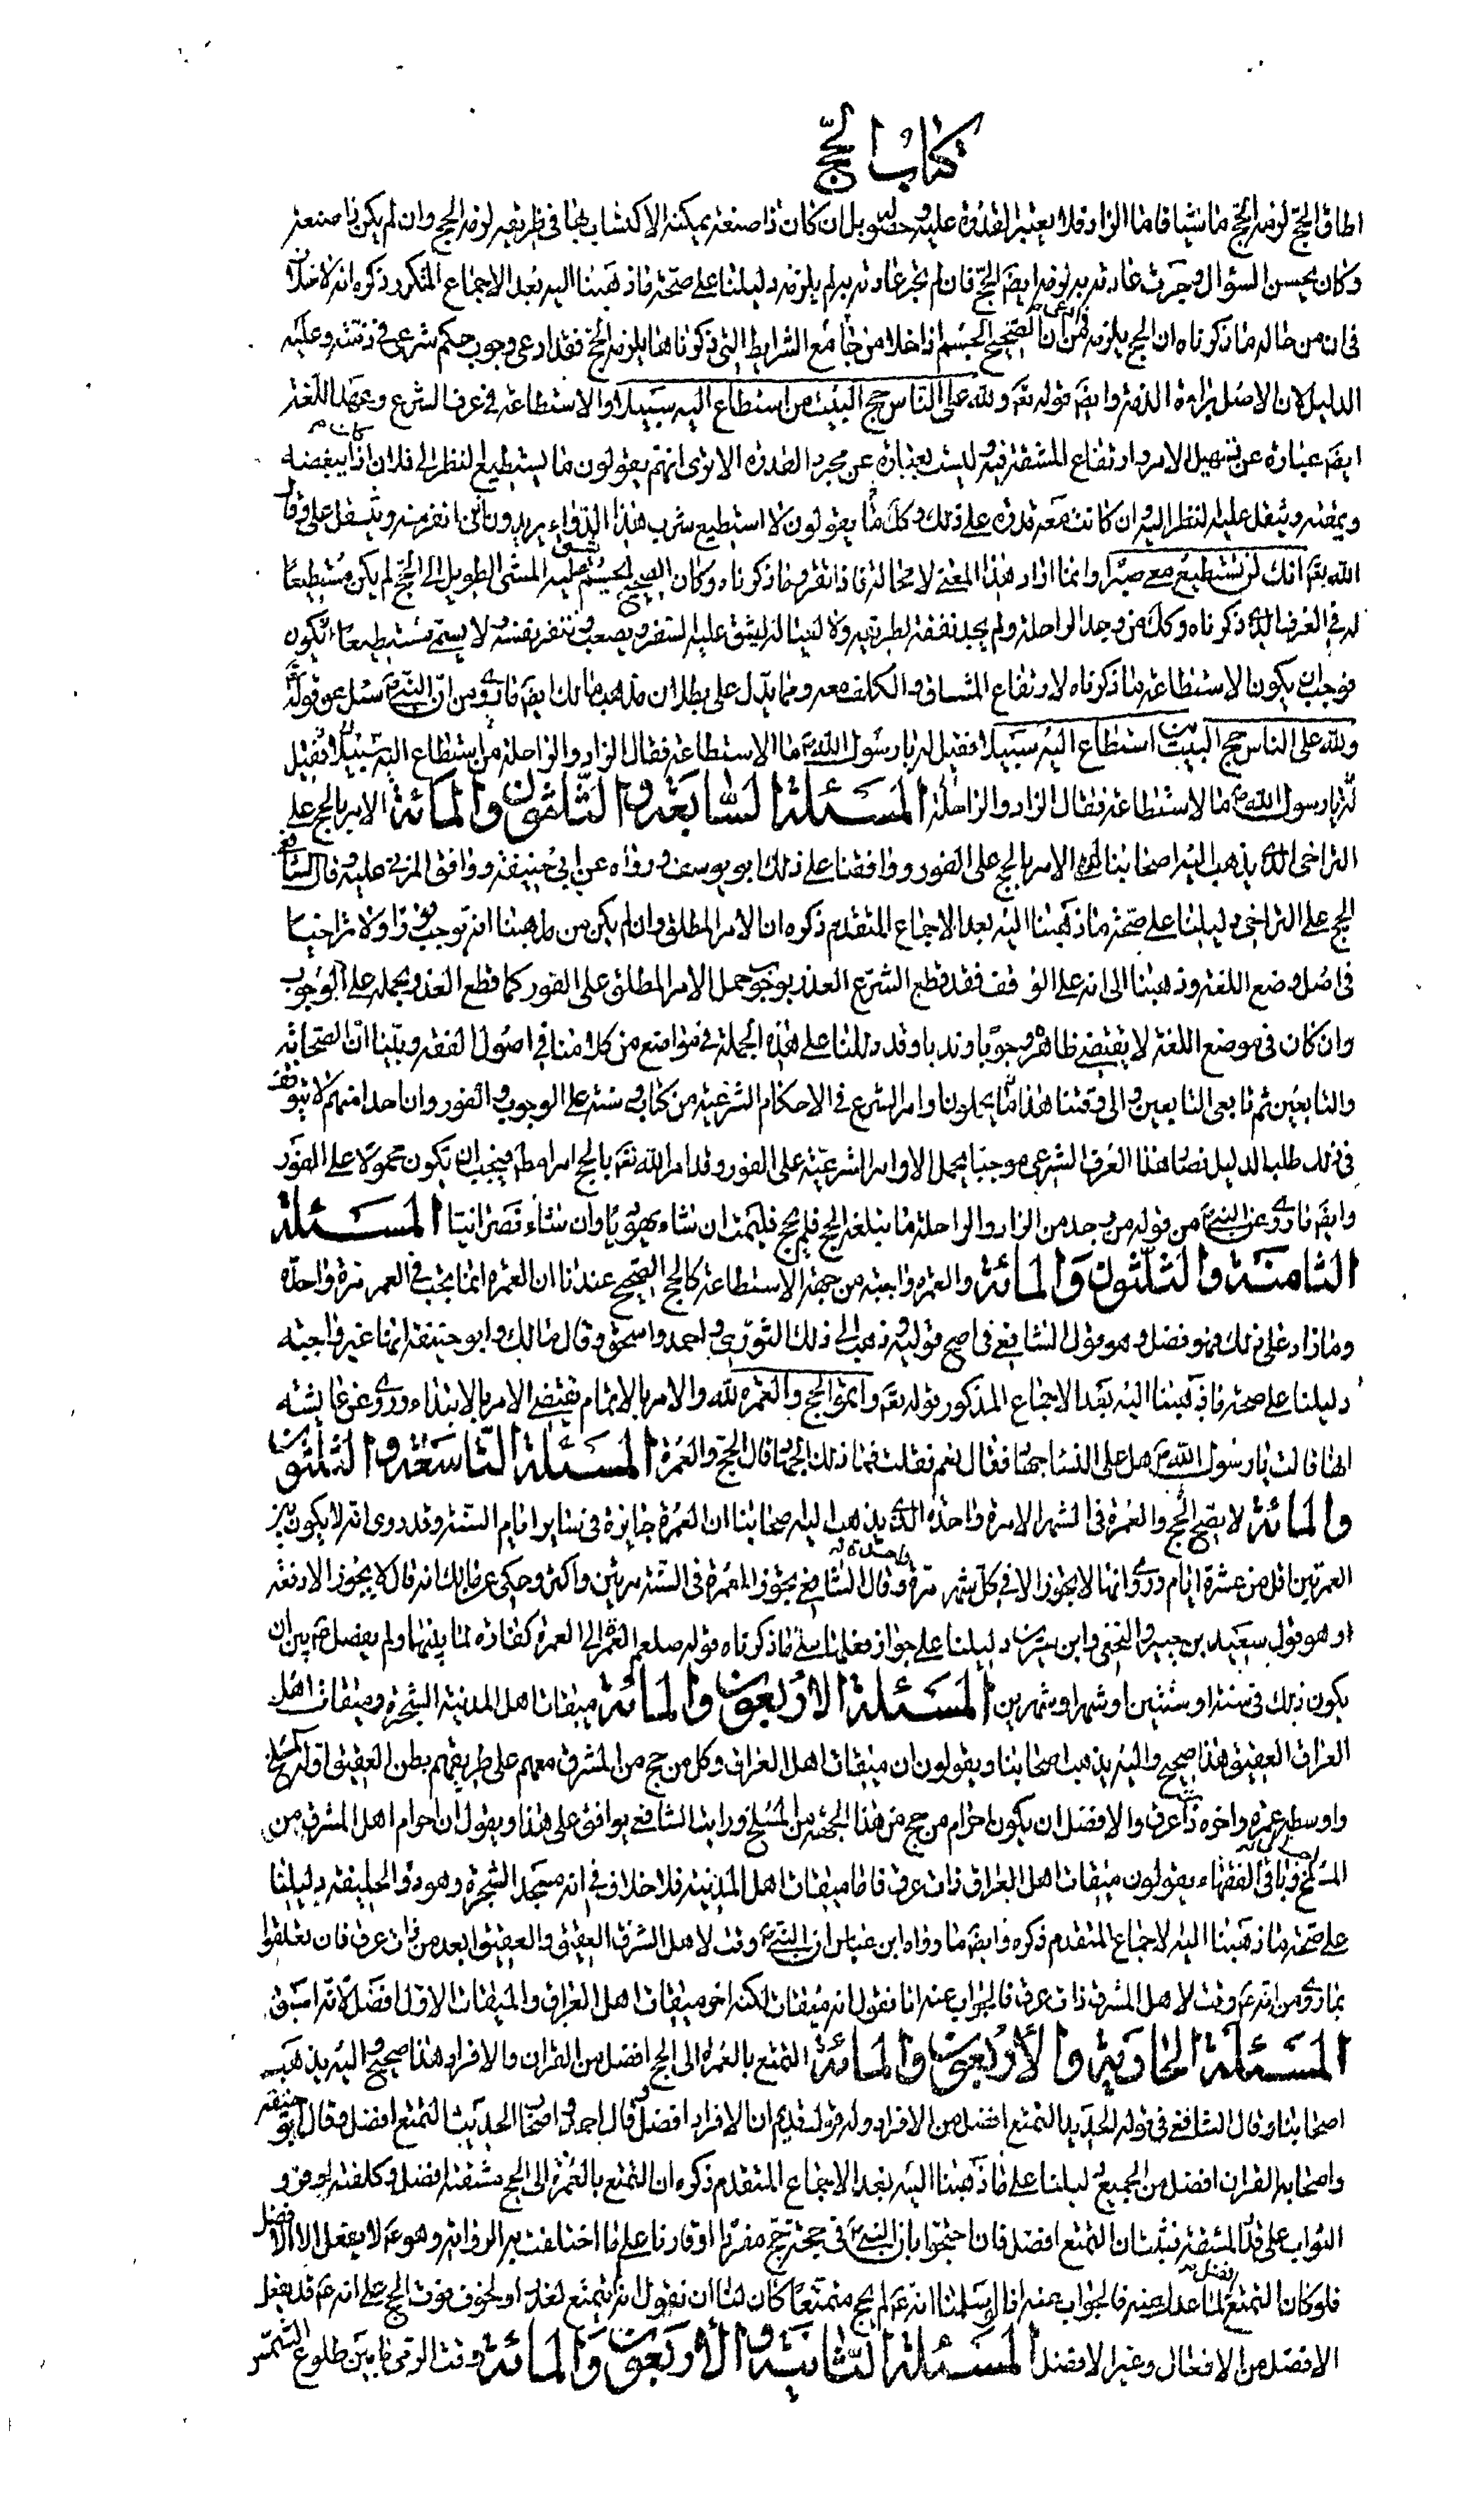 كتاب الحج
اطاق الحج لزمه الحج ماشيا فاما الزاد فلا يعتبر القدرة عليه وحصوله بل ان كان ذا صنعة يمكنه الاكتساب بها في طريقه لزمه الحج وان لم يكن ذا صنعة
وكان يحسن السؤال وجرت عادته به لزمه ايضا الحج فان لم تجر عادته به لم يلزمه دليلنا على صحة ما ذهبنا اليه بعد الاجماع المتكرر ذكره انه لا خلاف
في ان من حاله ما ذكرناه ان الحج يلزمه فمن ادعى ان الصحيح الجسم اذا خلا من جامع الشرايط التي ذكرناها يلزمه الحج فقد ادعى وجوب حكم شرعي في ذمته وعليه
الدليل لان الاصل براءة الذمة وايضا قوله تعالى ولله على الناس حج البيت من استطاع اليه سبيلا والاستطاعة في عرف الشرع وعهد اللغة
ايضا عبارة عن تسهيل الامر وارتفاع المشقة فيه وليست بعبارة عن مجرد القدرة الا ترى انهم يقولون ما يستطيع النظر الى فلان اذا كان يبغضه
ويمقته ويثقل عليه النظر اليه وان كانت معه قدرة على ذلك وكذلك يقولون لا استطيع شرب هذا الدواء يريدون انني انفر منه ويثقل علي وقال
الله تعالى انك لن تستطيع معي صبرا وانما اراد هذا المعنى لا محالة فاذا تقرر ما ذكرناه وكان الصحيح الجسم يشق عليه المشي الطويل الى الحج لم يكن مستطيعا
له في العرف الذي ذكرناه وكذلك من وجد الراحلة ولم يجد نفقة لطريقه ولا لعياله يشق عليه السفر ويصعب وتنفر نفسه ولا يسمى مستطيعا
فوجب ان يكون الاستطاعة ما ذكرناه لارتفاع المشاق والكلف معه ومما يدل على بطلان مذهب مالك ايضا ما روي من ان النبي ص سئل عن قوله تعالى
ولله على الناس حج البيت من استطاع اليه سبيلا فقيل له يا رسول الله ص ما الاستطاعة فقال الزاد والراحلة من استطاع اليه سبيلا فقيل
له يا رسول الله ص ما الاستطاعة فقال الزاد والراحلة المسئلة السابعة والثلثون والمائة الامر بالحج على
التراخي الذي يذهب اليه اصحابنا ان الامر بالحج على الفور ووافقنا على ذلك ابو يوسف ورواه عن ابي حنيفة ووافق المزني عليه وقال الشافعي
الحج على التراخي دليلنا على صحة ما ذهبنا اليه بعد الاجماع المتقدم ذكره ان الامر المطلق وان لم يكن من مذهبنا انه يوجب فورا ولا تراخيا
في اصل وضع اللغة وذهبنا الى انه على الوقف فقد قطع الشرع العذر بوجوب حمل الامر المطلق على الفور كما قطع العذر بحمله على الوجوب
وان كان في موضع اللغة لا يقتضي ظاهره وجوبا وندبا وقد دللنا على هذه الجملة في مواضع من كلامنا في اصول الفقه وبينا ان الصحابة
والتابعين ثم تابعي التابعين والى وقتنا هذا يحملون اوامر الشرع في الاحكام الشرعية من كتاب وسنة على الوجوب والفور وان احدا منهم لا يتوقف
في ذلك طلبا لدليل فصار هذا العرف الشرعي موجبا بحمل الاوامر الشرعية على الفور وقد امر الله تعالى بالحج امرا مطلقا فيجب ان يكون محمولا على الفور
وايضا ما روي عن النبي ص من قوله من وجد من الزاد والراحلة ما يبلغه الحج فلم يحج فليمت ان شاء يهوديا وان شاء نصرانيا المسئلة
الثامنة والثلثون والمائة والعمرة واجبة من جهة الاستطاعة كالحج الصحيح عندنا ان العمرة انما تجب في العمر مرة واحدة
وما زاد على ذلك فهو فضل وهو قول الشافعي في اصح قوليه وذهب الى ذلك الثوري واحمد واسحق وقال مالك وابو حنيفة انها غير واجبة
دليلنا على صحة ما ذهبنا اليه بعد الاجماع المذكور قوله تعالى واتموا الحج والعمرة لله والامر بالاتمام يقتضي الامر بالابتداء وروي عن عايشة
انها قالت يا رسول الله ص هل على النساء جهاد فقال نعم فقلت فما ذلك الجهاد قال الحج والعمرة المسئلة التاسعة والثلثون
والمائة لا يصح الحج والعمرة في الشهر الا مرة واحدة الذي يذهب اليه صحابنا ان العمرة جايزة في ساير ايام السنة وقد روي انه لا يكون بين
العمرتين اقل من عشرة ايام وروي انها لا يجوز الا في كل شهر مرة واحدة وقال الشافعي يجوز العمرة في السنة مرتين واكثر وحكي عن مالك انه قال لا يجوز الا دفعة
وهو قول سعيد بن جبير والنخعي وابن سيرين دليلنا على جواز فعلها على ما ذكرناه قوله صلعم العمرة الى العمرة كفارة لما بينهما ولم يفصل ص بين ان
يكون ذلك في سنة او سنتين او شهر او شهرين المسئلة الاربعون والمائة ميقات اهل المدينة الشجرة وميقات اهل
العراق العقيق هذا صحيح واليه يذهب اصحابنا ويقولون ان ميقات اهل العراق وكل من حج من المشرق معهم على طريقهم بطن العقيق اوله المسلخ
واوسطه غمرة واخره ذات عرق والافضل ان يكون احرام من حج من هذا الجهة من المسلخ ورأيت الشافعي يوافق على هذا ويقول ان احرام اهل المشرق من
المسلخ وباقي الفقهاء يقولون ميقات اهل العراق ذات عرق فاما ميقات اهل المدينة فلا خلاف في انه مسجد الشجرة وهو ذو الحليفة دليلنا
على صحة ما ذهبنا اليه الاجماع المتقدم ذكره وايضا ما رواه ابن عباس ان النبي ص وقت لاهل المشرق العقيق والعقيق ابعد من ذات عرق فان تعلقوا
بما روي من انه ع وقت لاهل المشرق ذات عرق فالجواب عنه انا نقول انه ميقات لكنه اخر ميقات اهل العراق والميقات الاول افضل لانه اسبق
المسئلة الحادية والاربعون والمائة التمتع بالعمرة الى الحج افضل من القران والافراد هذا صحيح واليه يذهب
اصحابنا وقال الشافعي في قوله الجديد التمتع افضل من الافراد وله قول قديم ان الافراد افضل وقال احمد واصحاب الحديث التمتع افضل وقال ابو حنيفة
واصحابه القران افضل من الجميع دليلنا على ما ذهبنا اليه بعد الاجماع المتقدم ذكره ان التمتع بالعمرة الى الحج مشقته افضل وكلفته اوفر و
الثواب على قدر المشقة فثبت ان التمتع افضل فان احتجوا بان النبي ص في حجته حج مفردا او قارنا على ما اختلفت به الرواية وهو ع لا يفعل الا الافضل
فلو كان التمتع افضل لما عدل عنه فالجواب عنه انا لو سلمنا انه ع لم يحج متمتعا كان لنا ان نقول انه لم يتمتع لعذر او لخوف فوت الحج على انه ع قد يفعل
الافضل من الافعال وغير الافضل المسئلة الثانية والاربعون والمائة وقت الرمي ما بين طلوع الشمس